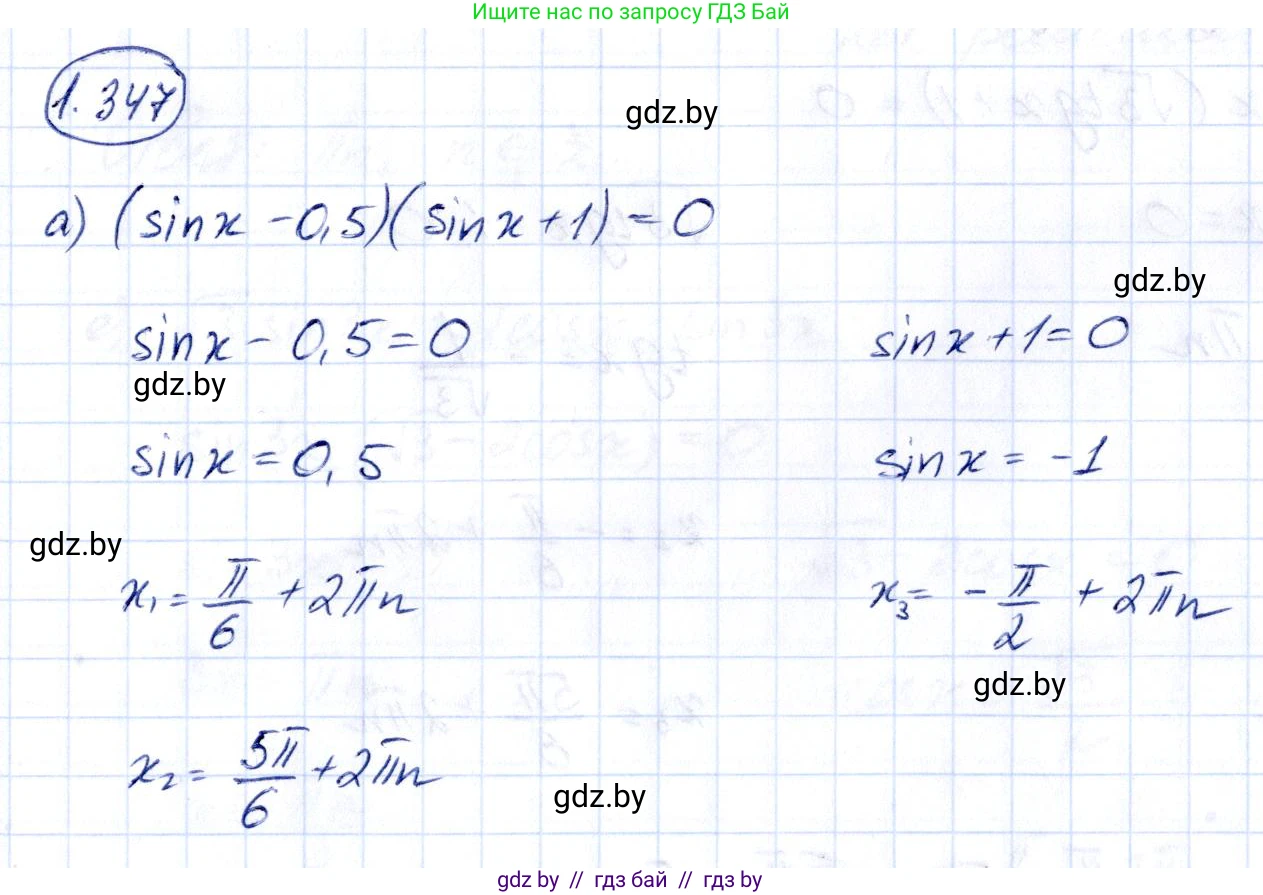 Ищите нас по запросу ГДЗ Бай
1.347
gdz.by
а) (sinx - 0,5)(sinx + 1) = 0
gdz.by
sinx - 0,5 = 0 sinx + 1 = 0
gdz.by
sinx = 0,5 sinx = -1
gdz.by
x₁ = π/6 + 2πn x₃ = -π/2 + 2πn
gdz.by
x₂ = 5π/6 + 2πn
gdz.by
gdz.by // гдз бай // гдз by